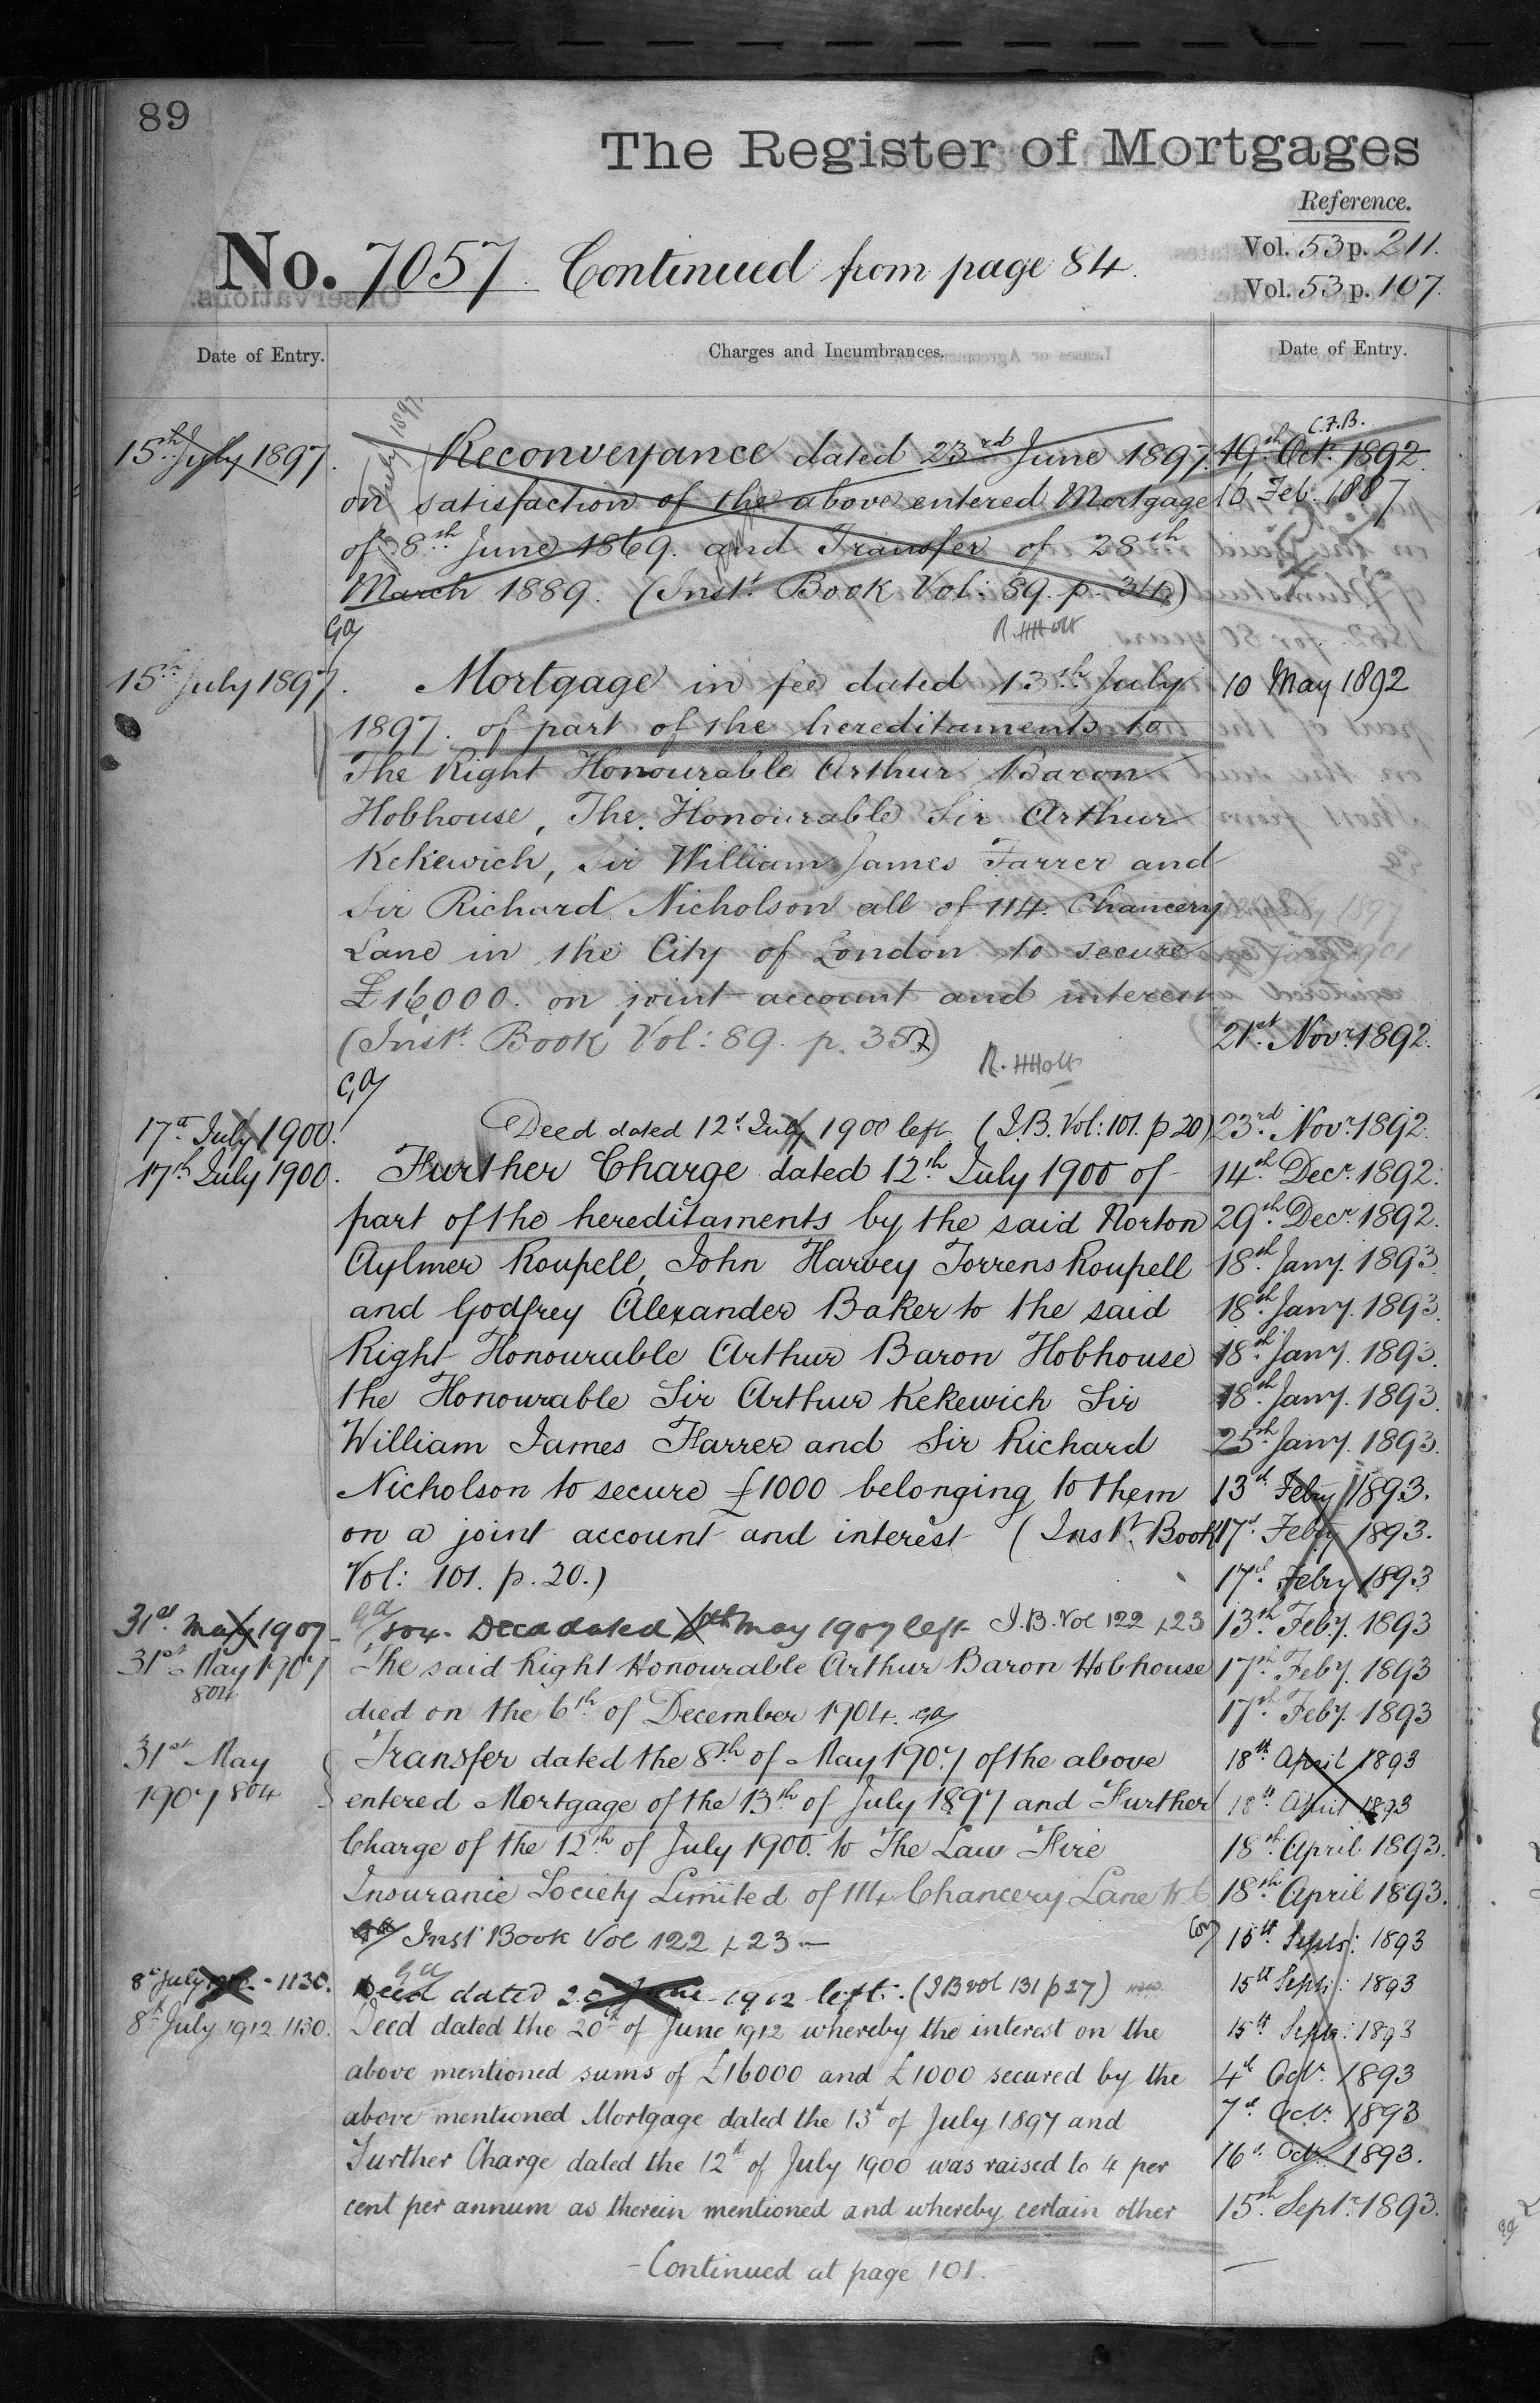 89
The Register of Mortgages
Reference.
No. 7057. Continued from page 84.
Vol. 53 p. 211.
Vol. 53 p. 107.
Date of Entry.
Charges and Incumbrances.
Date of Entry.
15th July 1897.
Reconveyance dated 23rd June 1897.
on satisfaction of the above entered Mortgage
of 8th June 1869. and Transfer of 28th
March 1889. (Inst. Book Vol: 89. p. 34)
R. HHolt
15th July 1897.
Mortgage in fee dated 13th July
1897. of part of the hereditaments to
The Right Honourable Arthur Baron
Hobhouse, The Honourable Sir Arthur
Kekewich, Sir William James Farrer and
Sir Richard Nicholson all of 114. Chancery
Lane in the City of London to secure
£16,000. on joint account and interest
(Inst. Book Vol: 89. p. 35)
R. HHolt
17th July 1900.
Deed dated 12th July 1900 left (I.B. Vol: 101. p 20)
17th July 1900.
Further Charge dated 12th July 1900 of
part of the hereditaments by the said Norton
Aylmer Roupell, John Harvey Torrens Roupell
and Godfrey Alexander Baker to the said
Right Honourable Arthur Baron Hobhouse
the Honourable Sir Arthur Kekewich Sir
William James Farrer and Sir Richard
Nicholson to secure £1000 belonging to them
on a joint account and interest (Inst. Book
Vol: 101. p. 20.)
31st May 1907
804. Deed dated 8th May 1907 left I.B. Vol 122 p 23
31st May 1907
804
The said Right Honourable Arthur Baron Hobhouse
died on the 6th of December 1904.
31st May
1907 804
Transfer dated the 8th of May 1907 of the above
entered Mortgage of the 13th of July 1897 and Further
Charge of the 12th of July 1900. to The Law Fire
Insurance Society Limited of 114 Chancery Lane W C
Inst Book Vol 122 p 23
8th July 1912 - 1130.
Deed dated 20 June 1912 left. (IB vol 131 p 27)
8th July 1912. 1130.
Deed dated the 20th of June 1912 whereby the interest on the
above mentioned sums of £16000 and £1000 secured by the
above mentioned Mortgage dated the 13th of July 1897 and
Further Charge dated the 12th of July 1900 was raised to 4 per
cent per annum as therein mentioned and whereby certain other
- Continued at page 101.
C.F.B.
19th Oct. 1892.
16 Feb. 1887
10 May 1892
21st Novr. 1892.
23rd Novr. 1892.
14th Decr. 1892.
29th Decr. 1892.
18th Jany. 1893.
18th Jany. 1893.
18th Jany. 1893.
18th Jany. 1893.
25th Jany. 1893.
13th Febry 1893.
17th Febry 1893.
17th Febry 1893
13th Feby. 1893
17th Feby. 1893
17th Feby. 1893
18th April 1893
18th April 1893
18th April 1893.
18th April 1893.
15th Septr: 1893
15th Septr: 1893
15th Septr: 1893
4th Octr. 1893
7th Octr. 1893
16th Octr. 1893.
15th Septr. 1893.